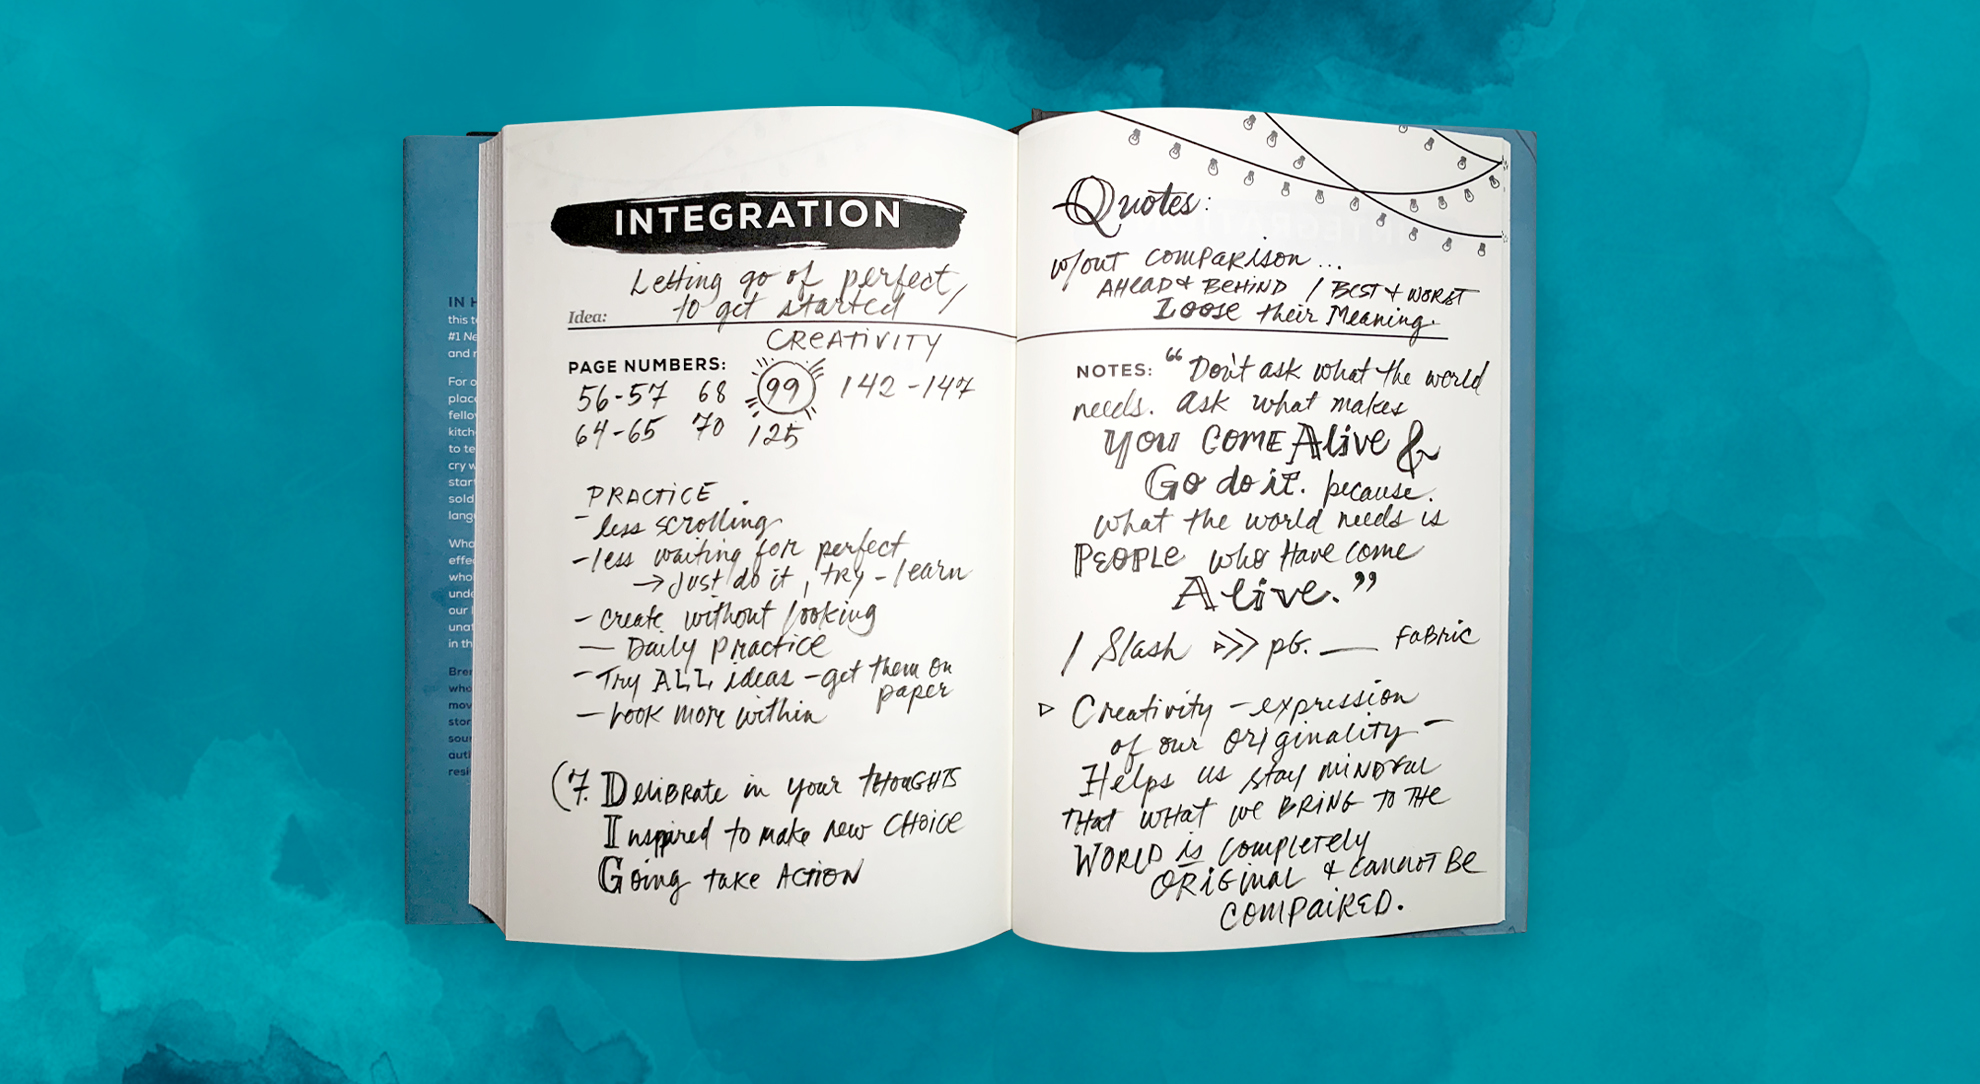 INTEGRATION
Letting go of perfect
to get started /
Idea:
CREATIVITY
PAGE NUMBERS:
56-57 68 99 142-147
64-65 70 125
PRACTICE
- less scrolling
- less waiting for perfect
→ Just do it, try - learn
- create without looking
— Daily practice
- Try ALL ideas - get them on
paper
— Look more within
(7. Delibrate in your THOUGHTS
Inspired to make new CHOICE
Going take ACTION
Quotes:
w/out comparison...
AHEAD & BEHIND / BEST & WORST
Loose their Meaning.
NOTES: "Don't ask what the world
needs. Ask what makes
you COME Alive &
Go do it. because.
what the world needs is
PEOPLE who have come
Alive."
/ Slash >>> pg. ___ FaBric
▷ Creativity - expression
of our originality -
Helps us stay MINDFUL
THat WHAT we BRING TO THE
WORLD is completely
ORIGINAL & cannot BE
COMPAIRED.
IN H
this t
#1 Ne
and r
For o
place
fello
kitch
to te
cry w
start
sold
lang
Wha
effe
who
unde
our l
unaf
in th
Bren
who
mov
stor
sour
auti
resi